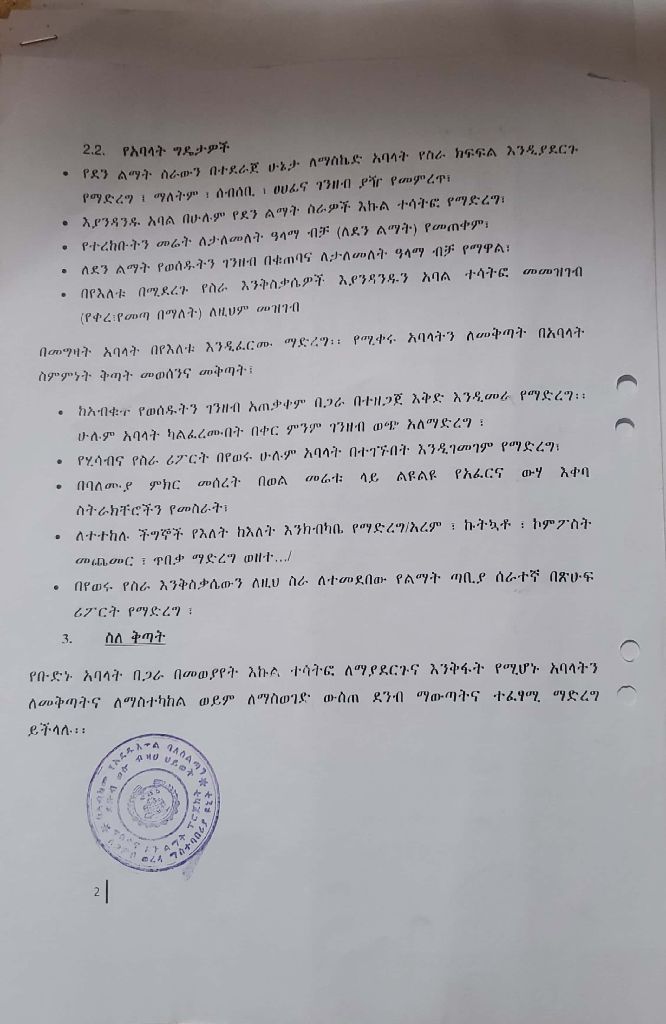 2.2. የአባላት ግዴታዎች
• የደን ልማት ስራውን በተደራጀ ሁኔታ ለማስኬድ አባላት የስራ ክፍፍል እንዲያደርጉ
የማድረግ ፣ ማለትም ፣ ሰብሰቢ ፣ ፀሀፊና ገንዘብ ያዥ የመምረጥ፣
• እያንዳንዱ አባል በሁሉም የደን ልማት ስራዎች እኩል ተሳትፎ የማድረግ፣
• የተረከቡትን መሬት ለታለመለት ዓላማ ብቻ (ለደን ልማት) የመጠቀም፣
• ለደን ልማት የወሰዱትን ገንዘብ በቁጠባና ለታለመለት ዓላማ ብቻ የማዋል፣
• በየእለቱ በሚደረጉ የስራ እንቅስቃሴዎች እያንዳንዱን አባል ተሳትፎ መመዝገብ
(የቀረ፣የመጣ በማለት) ለዚህም መዝገብ
በመግዛት አባላት በየእለቱ እንዲፈርሙ ማድረግ፡፡ የሚቀሩ አባላትን ለመቅጣት በአባላት
ስምምነት ቅጣት መወሰንና መቅጣት፣
• ከአብቁተ የወሰዱትን ገንዘብ አጠቃቀም በጋራ በተዘጋጀ እቅድ እንዲመራ የማድረግ፡፡
ሁሉም አባላት ካልፈረሙበት በቀር ምንም ገንዘብ ወጭ አለማድረግ ፣
• የሂሳብና የስራ ሪፖርት በየወሩ ሁሉም አባላት በተገኙበት እንዲገመገም የማድረግ፣
• በባለሙያ ምክር መሰረት በወል መሬቱ ላይ ልዩልዩ የአፈርና ውሃ እቀባ
ስትራክቸሮችን የመስራት፣
• ለተተከሉ ችግኞች የእለት ከእለት እንክብካቤ የማድረግ/አረም ፣ ኩትኳቶ ፣ ኮምፖስት
መጨመር ፣ ጥበቃ ማድረግ ወዘተ.../
• በየወሩ የስራ እንቅስቃሴውን ለዚህ ስራ ለተመደበው የልማት ጣቢያ ሰራተኛ በጽሁፍ
ሪፖርት የማድረግ ፣
3. ስለ ቅጣት
የቡድኑ አባላት በጋራ በመወያየት እኩል ተሳትፎ ለማያደርጉና እንቅፋት የሚሆኑ አባላትን
ለመቅጣትና ለማስተካከል ወይም ለማስወገድ ውስጠ ደንብ ማውጣትና ተፈፃሚ ማድረግ
ይችላሉ፡፡
2